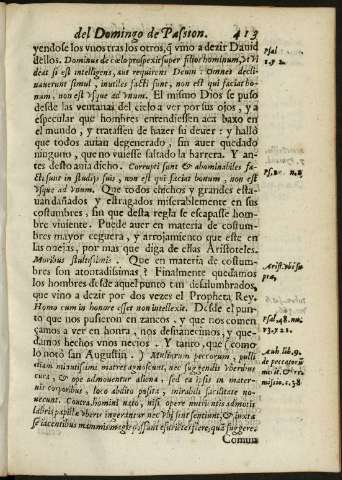 del Domingo de Passion. 413
yendose los vnos tras los otros, q̃ vino a dezir Dauid
dellos. Dominus de cælo prospexit super filios hominum, vt vi
deat si est intelligens, aut requirens Deum: omnes decli
nauerunt simul, inutiles facti sunt, non est qui faciat bo
num, non est vsque ad vnum. El mismo Dios se puso
desde las ventanas del cielo a ver por sus ojos, y a
especular que hombres entendiessen aca baxo en
el mundo, y tratassen de hazer su deuer: y hallò
que todos auian degenerado, sin auer quedado
ninguno, que no vuiesse faltado la barrera. Y an
tes desto auia dicho. Corrupti sunt & abominabiles fa
cti sunt in studijs suis, non est qui faciat bonum, non est
vsque ad vnum. Que todos chicos y grandes esta-
uan dañados y estragados miserablemente en sus
costumbres, sin que desta regla se escapasse hom-
bre viuiente. Puede auer en materia de costum-
bres mayor ceguera, y arrojamiento que este en
las ouejas, por mas que diga dellas Aristoteles.
Moribus stultissimis. Que en materia de costum-
bres son atontadissimas? Finalmente quedamos
los hombres desde aquel punto tan desalumbrados,
que vino a dezir por dos vezes el Propheta Rey.
Homo cum in honore esset non intellexit. Desde el pun-
to que nos pusieron en zancos, y que nos comen
çamos a ver en honra, nos desuanecimos, y que-
damos hechos vnos necios. Y tanto, que (como
lo notò san Augustin.) Multorum pecorum, pulli
etiam minutissimi matres agnoscunt, nec suggendis vberum
cura, & ope admouentur aliena, sed ea ipsi in mater-
nis corporibus, loco abdito posita, mirabili facilitate no-
uerunt. Contra, homini nato, nisi opere nutrientis admotis
labris papillæ vberis ingerantur nec vbi sint sentiunt, & iuxta
se iacentibus mammis magis possunt esurientes flere, quã suggere.
Comun
Psal
1. y 2.
Ps. 2. n. 2
Arist. vbi su
pra,
Psal. 48. nu.
13. y 21.
Aub lib. 9.
de peccatorũ
1. 38